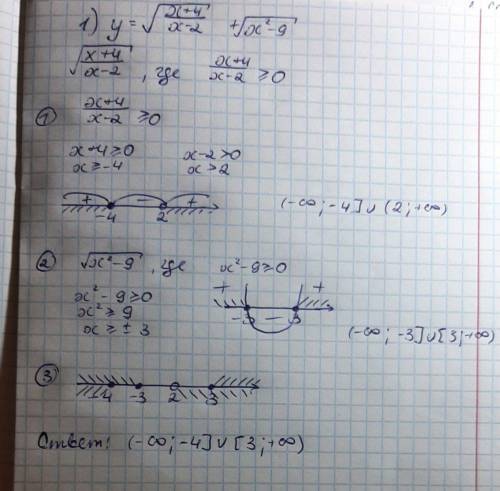 1) y = √((x+4)/(x-2)) + √(x²-9)
√((x+4)/(x-2)), где (x+4)/(x-2) ≥ 0
① (x+4)/(x-2) ≥ 0
x+4 ≥ 0 x-2 > 0
x ≥ -4 x > 2
+ - +
-4 2
(-∞; -4] ∪ (2; +∞)
② √(x²-9), где x²-9 ≥ 0
x² - 9 ≥ 0
x² ≥ 9
x ≥ ± 3
+ - +
-3 3
(-∞; -3] ∪ [3; +∞)
③
-4 -3 2 3
Ответ: (-∞; -4] ∪ [3; +∞)